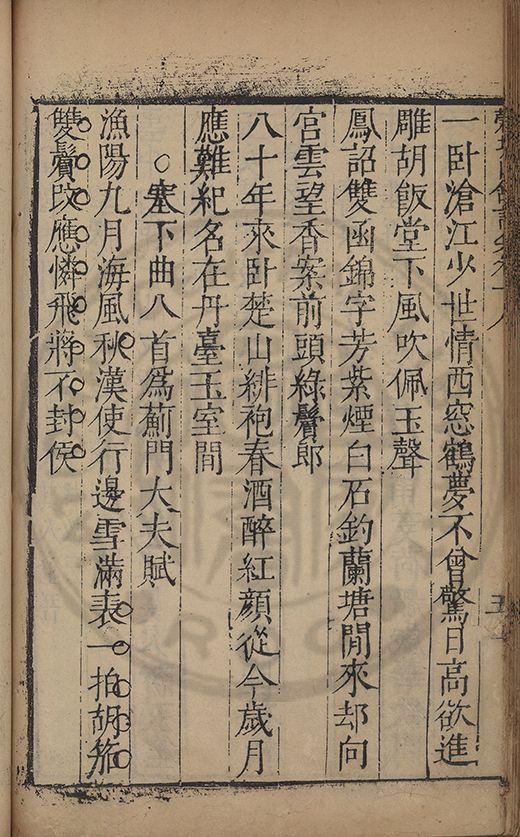 一卧滄江少世情西窓鶴夢不曾驚日高欲進
雕胡飯堂下風吹佩玉聲
鳳詔雙函錦字芳紫煙白石釣蘭塘閒來却向
宮雲望香案前頭綠鬢郎
八十年來卧楚山緋袍春酒醉紅顔從今歲月
應難紀名在丹臺玉室間
○塞下曲八首爲薊門大夫賦
漁陽九月海風秋漢使行邊雪滿裘一拍胡笳
雙鬢改應憐飛將不封侯